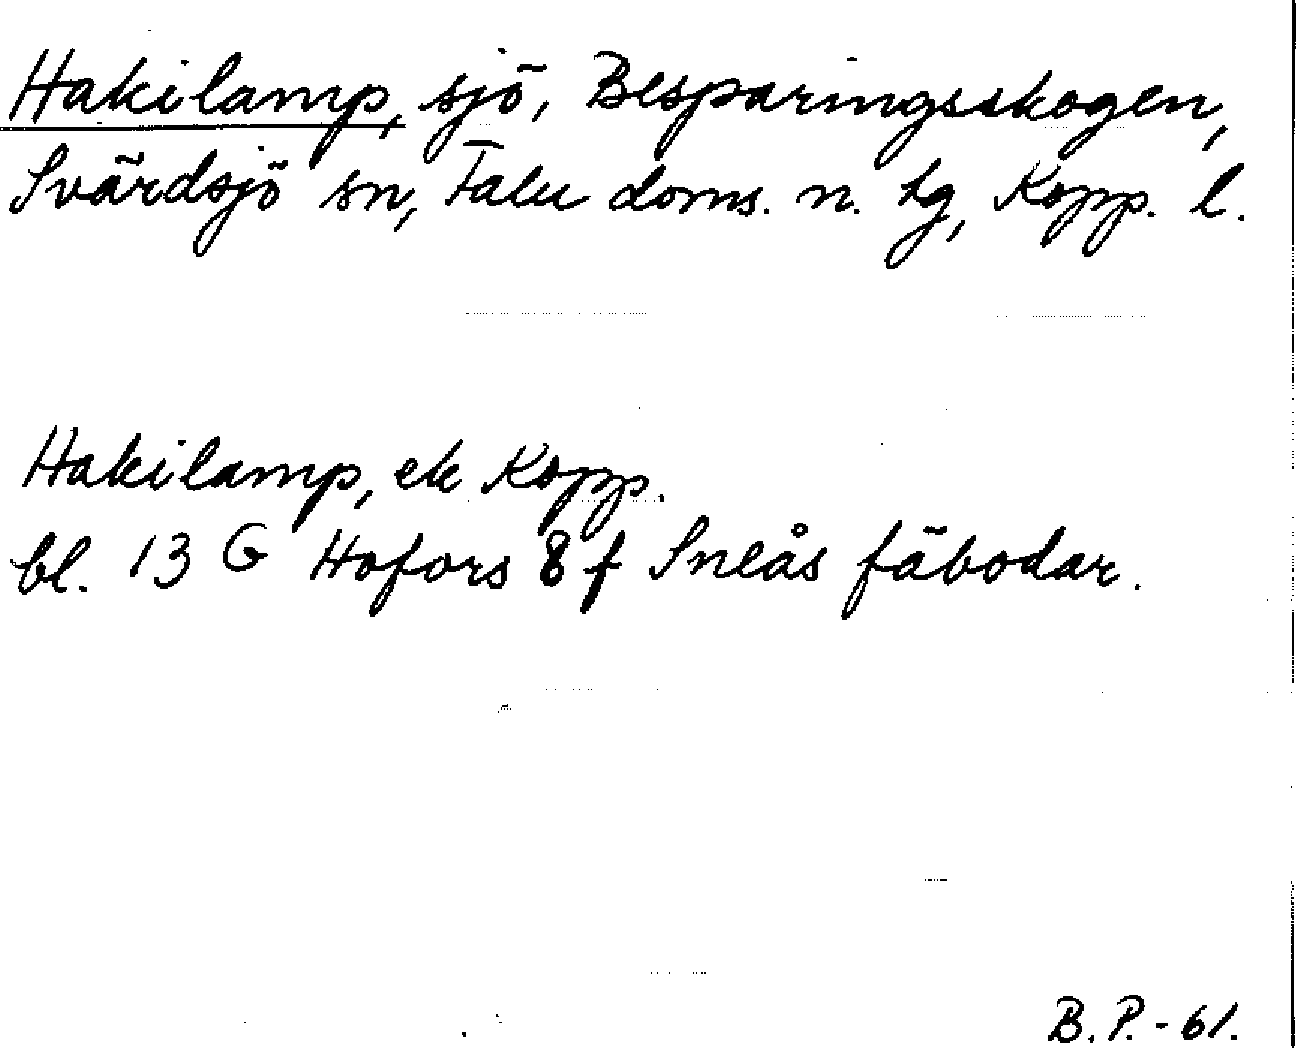 Hakilamp, sjö, Besparingsskogen,
Svärdsjö sn, Falu doms. n. tg, Kopp. l.
Hakilamp, ek Kopp.
bl. 13 G Hofors 8 f Snlås fäbodar.
B.P.-61.